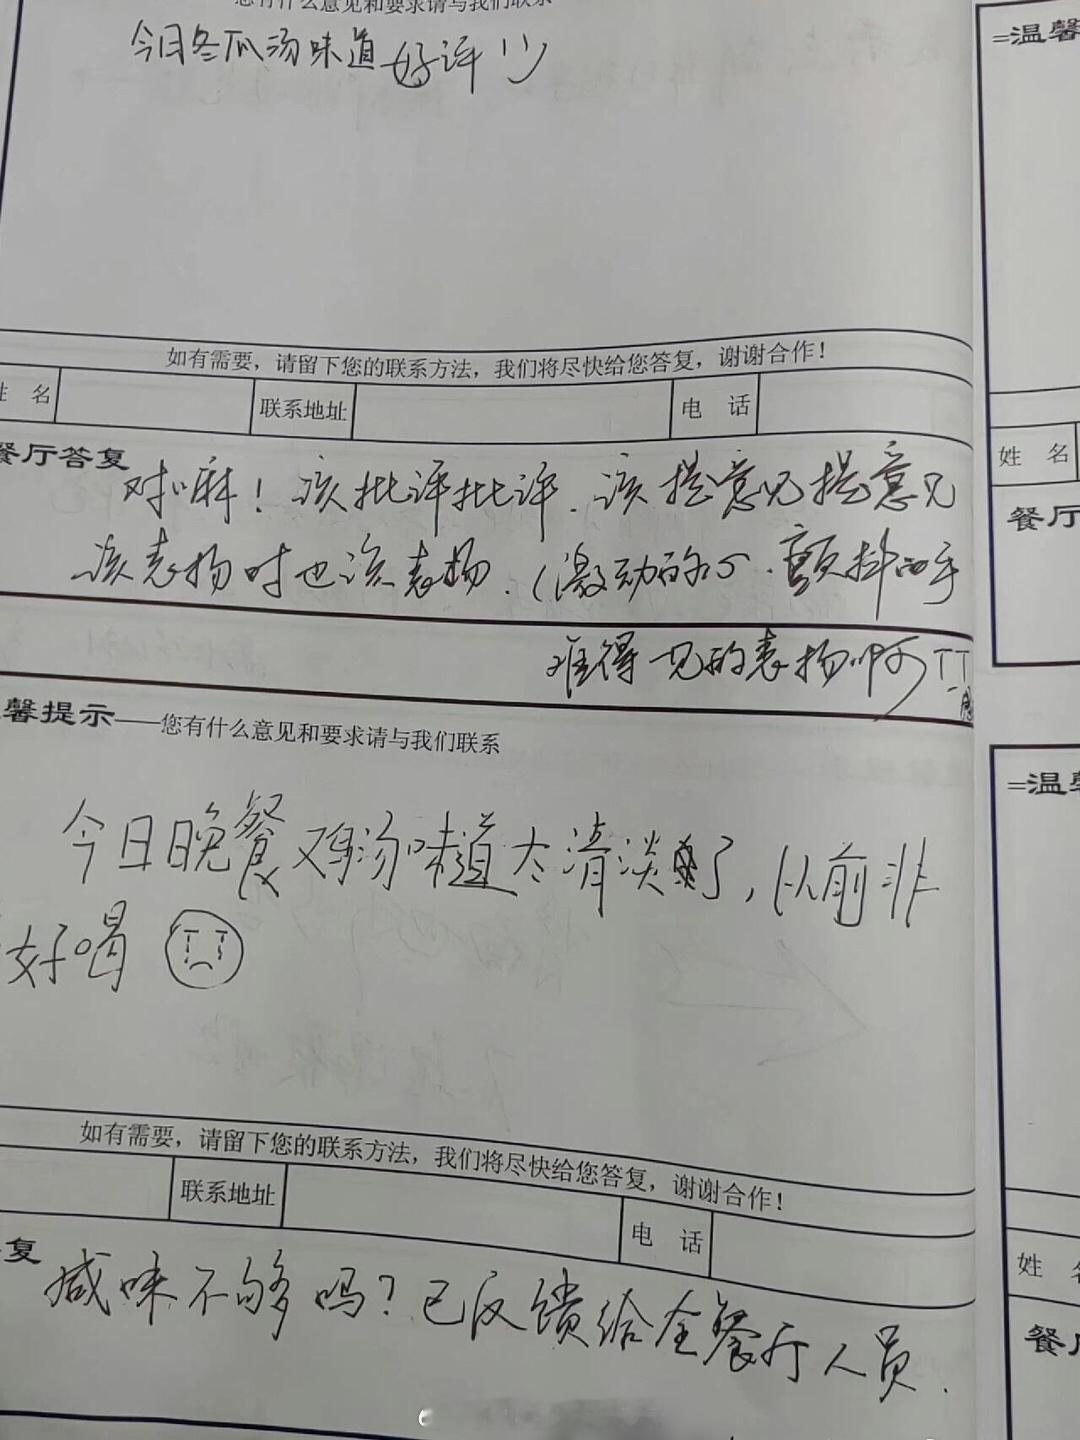 您有什么意见和要求请与我们联系
今日冬瓜汤味道好评
如有需要，请留下您的联系方法，我们将尽快给您答复，谢谢合作！
姓 名 联系地址 电 话
餐厅答复
对嘛！该批评批评.该提意见提意见
该表扬时也该表扬.（激动的心.颤抖的手
难得一见的表扬啊TT
馨提示——您有什么意见和要求请与我们联系
今日晚餐鸡汤味道太清淡了，从前非
好喝
如有需要，请留下您的联系方法，我们将尽快给您答复，谢谢合作！
联系地址 电 话
复
咸味不够吗？已反馈给全餐厅人员.
=温馨
姓 名
餐厅
=温馨
姓
餐厅